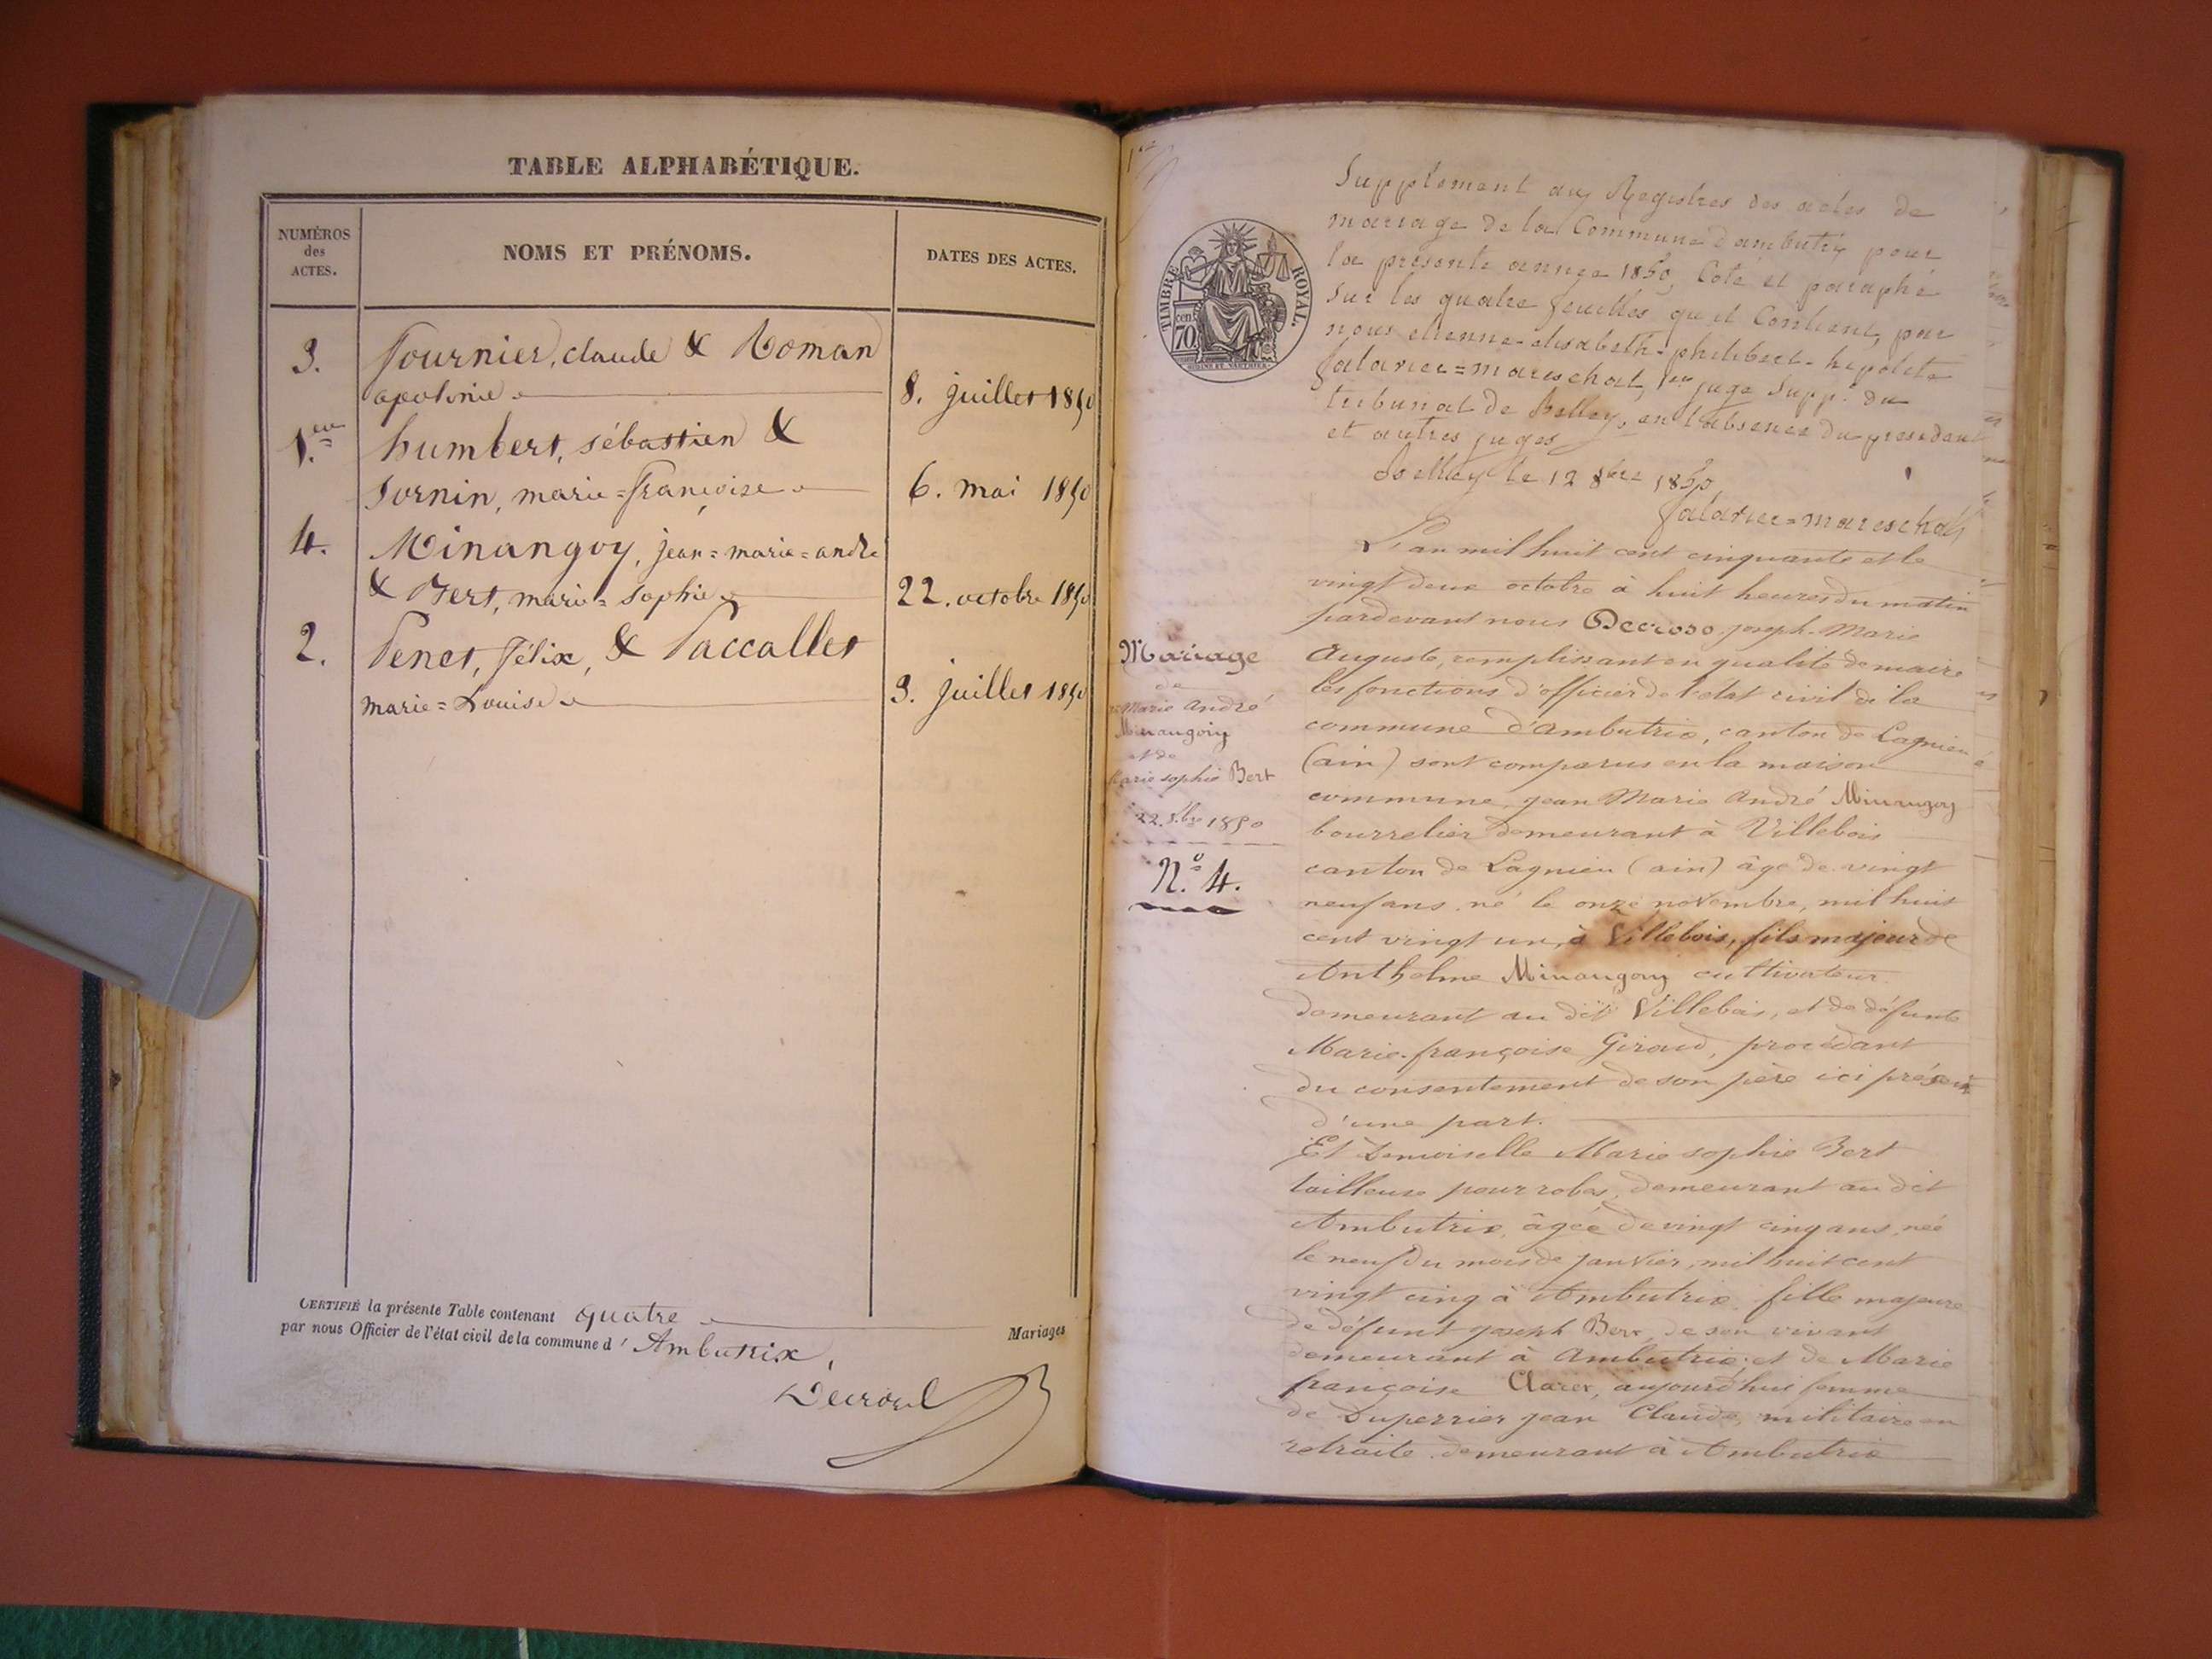 TABLE ALPHABÉTIQUE.
NUMÉROS
des
ACTES.
NOMS ET PRÉNOMS.
DATES DES ACTES.
3. fournier, claude & Roman
apolonie 8. juillet 1850
1.ere humbert, sébastien &
Jornin, marie=françoise 6. mai 1850
4. Minangoy, jean=marie=andré
& Bert, marie=sophie 22. octobre 1850
2. Penet, félix, & Paccallet
marie=Louise 3. juillet 1850
CERTIFIÉ la présente Table contenant quatre Mariages
par nous Officier de l'état civil de la commune d' Ambutrix,
Decroso
Supplement aux Registres des actes de
mariage de la Commune d'ambutrix pour
la présente année 1850, Coté et paraphé
Sur les quatre feuilles qu'il Contient, par
nous etienne-elisabeth-philibert-hipolite
=mareschal, 1er juge Supp.t du
tribunal de Belley, en l'absence du president
et autres juges
Belley le 12 8bre 1850
=mareschal
TIMBRE ROYAL.
70 cen
L'an mil huit cent cinquante et le
vingt deux octobre à huit heures du matin
pardevant nous Decroso joseph Marie
Auguste, remplissant en qualité de maire
les fonctions d'officier de l'état civil de la
commune d'Ambutrix, canton de Lagnieu
(ain) sont comparus en la maison
commune, jean Marie André Minangoy
bourrelier demeurant à Villebois
canton de Lagnieu (ain) âgé de vingt
neuf ans, né le onze novembre, mil huit
cent vingt un, à Villebois, fils majeur de
Anthelme Minangoy cultivateur
demeurant au dit Villebois, et de défunte
Marie françoise Giroud, procédant
du consentement de son père ici présent
d'une part.
Et Demoiselle Marie sophie Bert
tailleuse pour robes, demeurant au dit
Ambutrix, âgée de vingt cinq ans, née
le neuf du mois de janvier, mil huit cent
vingt cinq à Ambutrix, fille majeure
de défunt joseph Bert, de son vivant
demeurant à Ambutrix, et de Marie
françoise Claret, aujourd'hui femme
de Duperrier jean Claude, militaire en
retraite demeurant à Ambutrix
Mariage
de
Marie André
Minangoy
et de
Marie sophie Bert
22. 8bre 1850
N.º 4.